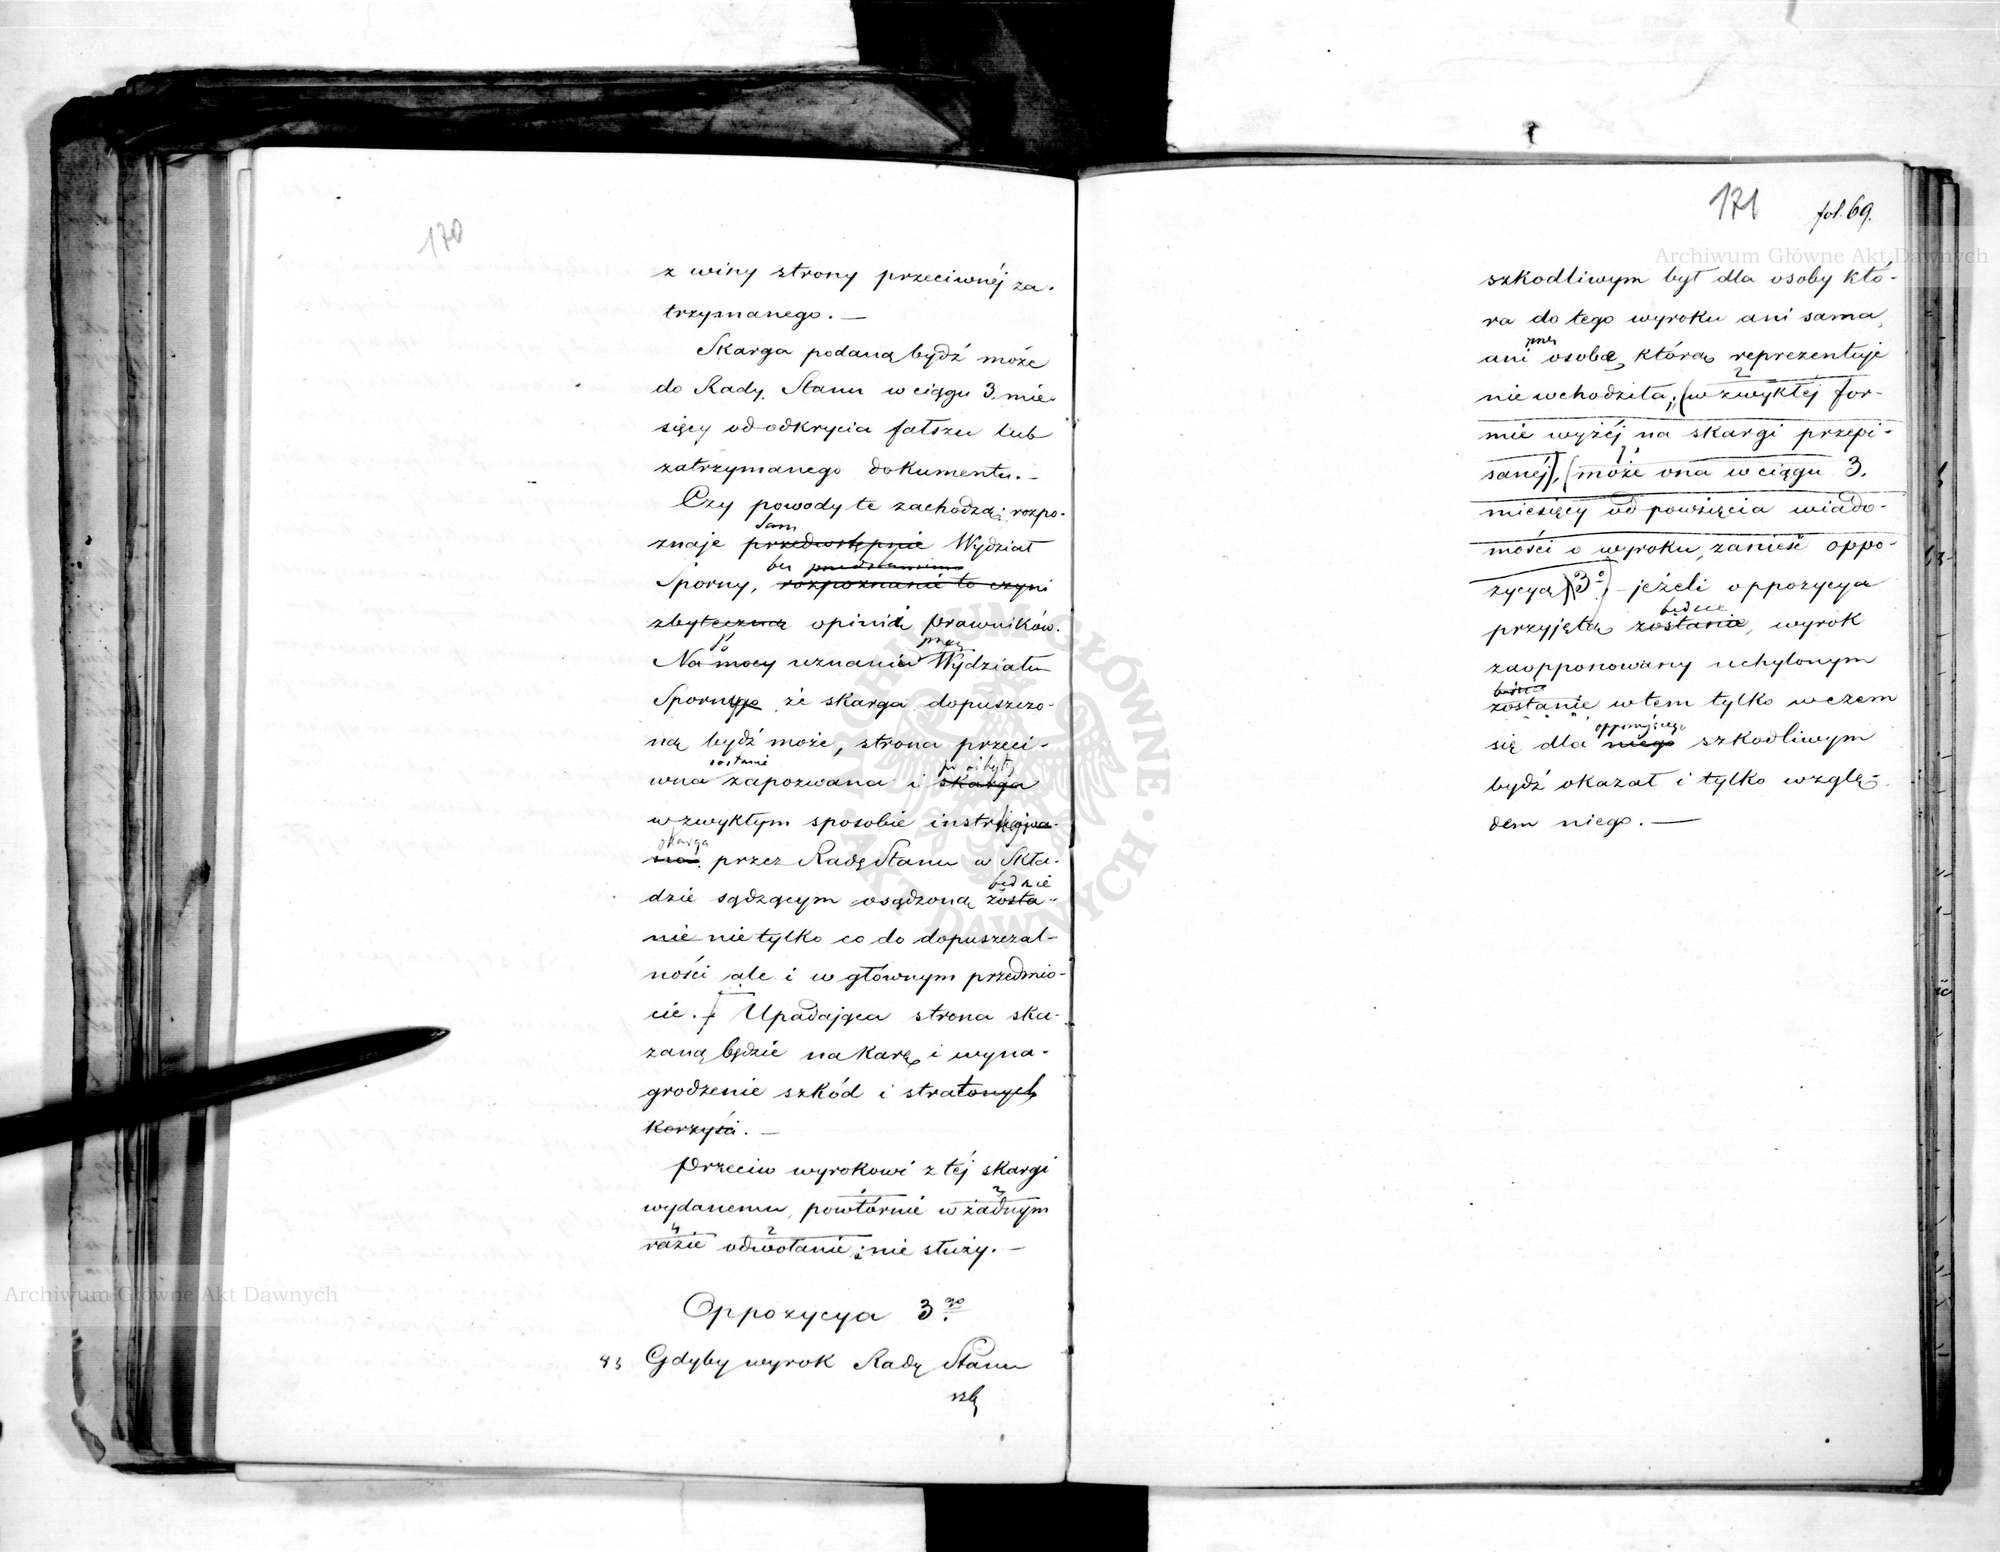 170
z winy strony przeciwnéj za-
trzymanego. —
Skarga podaną bydź może
do Rady Stanu w ciągu 3. mie-
sięcy od odkrycia fałszu lub
zatrzymanego dokumentu. —
Czy powody te zachodzą; rozpo-
sam
znaje przedwstępnie Wydział
bez
Sporny, rozpoznanie to czyni
zbyteczną opinią Prawników.
po przez
Na mocy uznania Wydziału
Spornego że skarga dopuszczo-
ną bydź może, strona przeci-
zostanie
wna zapozwana i skarga
w zwykłym sposobie instrugowa-
skarga
na przez Radę Stanu w Skła-
będzie
dzie sądzącym osądzoną zosta-
nie nie tylko co do dopuszczal-
ności ale i w głównym przedmio-
cie. Upadająca strona ska-
zaną będzie na karę i wyna-
grodzenie szkód i stratonych
korzyści. —
Przeciw wyrokowi z téj skargi
wydanemu, powtórnie w żadnym
razie odwołanie nie służy. —
Oppozycya 3go
43 Gdyby wyrok Rady Stanu
171 fol. 69.
szkodliwym był dla osoby któ-
ra do tego wyroku ani sama,
przez
ani osobę, którą reprezentuje
nie wchodziła; (w zwykłéj for-
mie wyżéj na skargi przepi-
sanéj), (może ona w ciągu 3.
miesięcy od powzięcia wiado-
mości o wyroku, zanieść oppo-
zycyą) 3º) jeżeli oppozycya
będzie
przyjętą zostanie, wyrok
zaopponowany uchylonym
będzie
zostanie w tem tylko w czem
opponującego
się dla niego szkodliwym
bydź okazał i tylko wzglę-
dem niego. —
Archiwum Główne Akt Dawnych
Archiwum Główne Akt Dawnych
ARCHIWUM GŁÓWNE AKT DAWNYCH